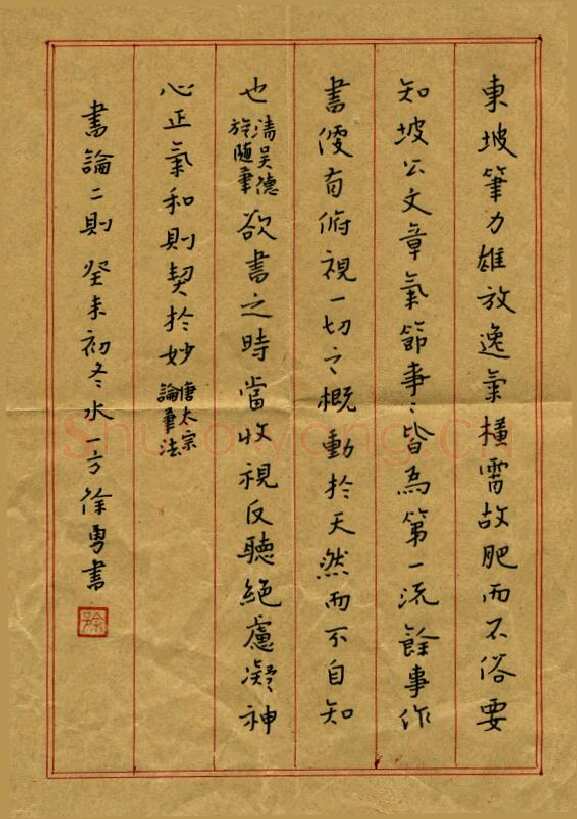 東坡筆力雄放逸氣橫霄故肥而不俗要
知坡公文章氣節事〻皆為第一流餘事作
書便有俯視一切之概動於天然而不自知
也清吳德旋隨筆欲書之時當收視反聽絕慮凝神
心正氣和則契於妙唐太宗論筆法
書論二則癸未初冬水一方徐勇書
徐